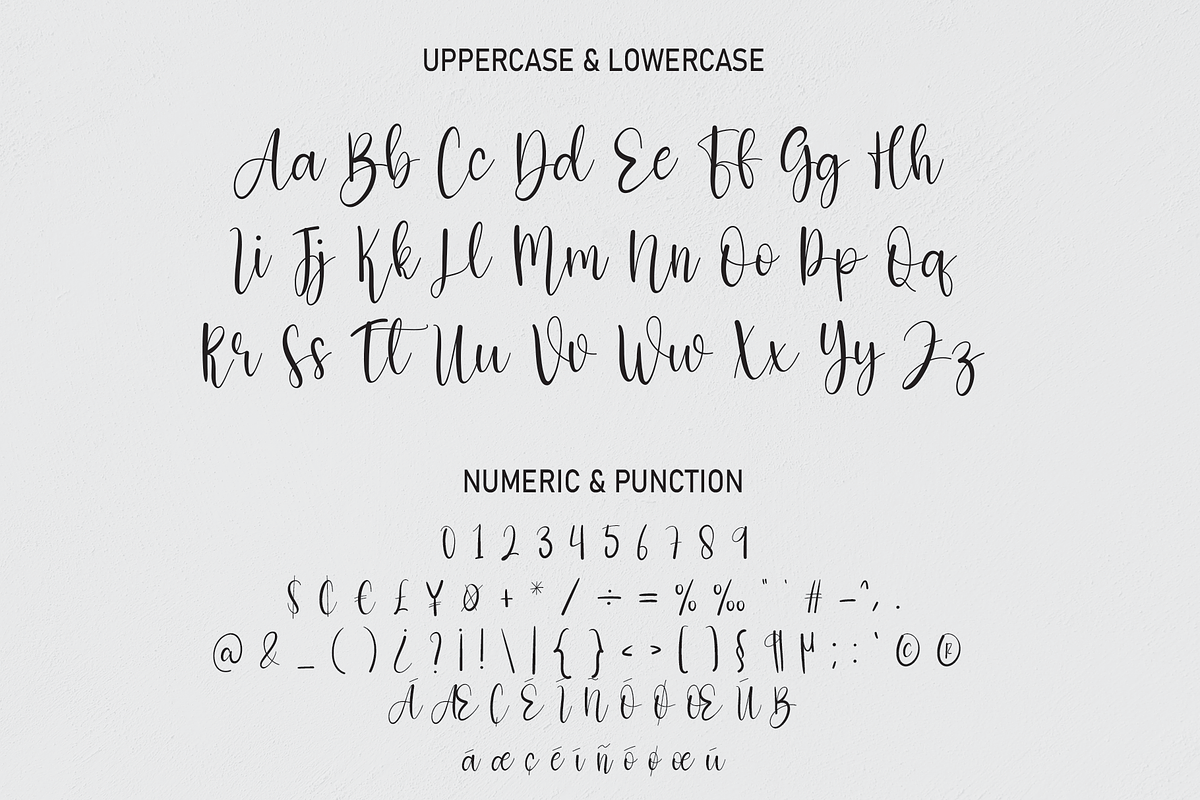 UPPERCASE & LOWERCASE
Aa Bb Cc Dd Ee Ff Gg Hh
Ii Jj Kk Ll Mm Nn Oo Pp Qq
Rr Ss Tt Uu Vv Ww Xx Yy Zz
NUMERIC & PUNCTION
0 1 2 3 4 5 6 7 8 9
$ ₵ € £ ¥ Ø + * / ÷ = % ‰ " ' # – ^ , .
@ & _ ( ) ¿ ? ¡ ! \ | { } < > [ ] § ¶ µ ; : ` © ®
Á Æ Ç É Í Ñ Ó Ø Œ Ú B
á æ ç é í ñ ó ø œ ú